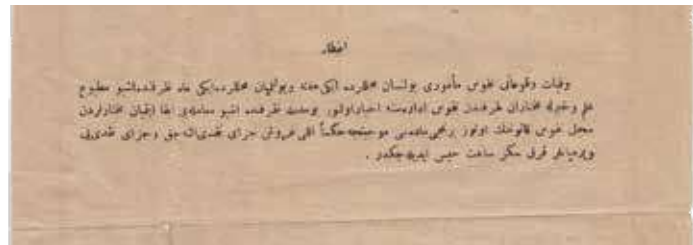 اخطار
وفيات وقوعاتی نفوس مأموری بولنان محللرده ایکی هفته وبولنمیان محللرده ایکی ماه ظرفنده اشبو مطبوع
علم وخبرله مختاران طرفندن نفوس اداره‌سنه اخبار اولنور بومدت ظرفنده اشبو معامله‌یی ایفا ایتمیان مختارلردن
معدل نفوس قانوننك اوتوز برنجی ماده‌سی موجبنجه حكماً اللی غروش جزای نقدی اله‌جق وجزای نقدی‌یی
ویرمیانلر قرق سكز ساعت حبس ایدیله‌جكدر .